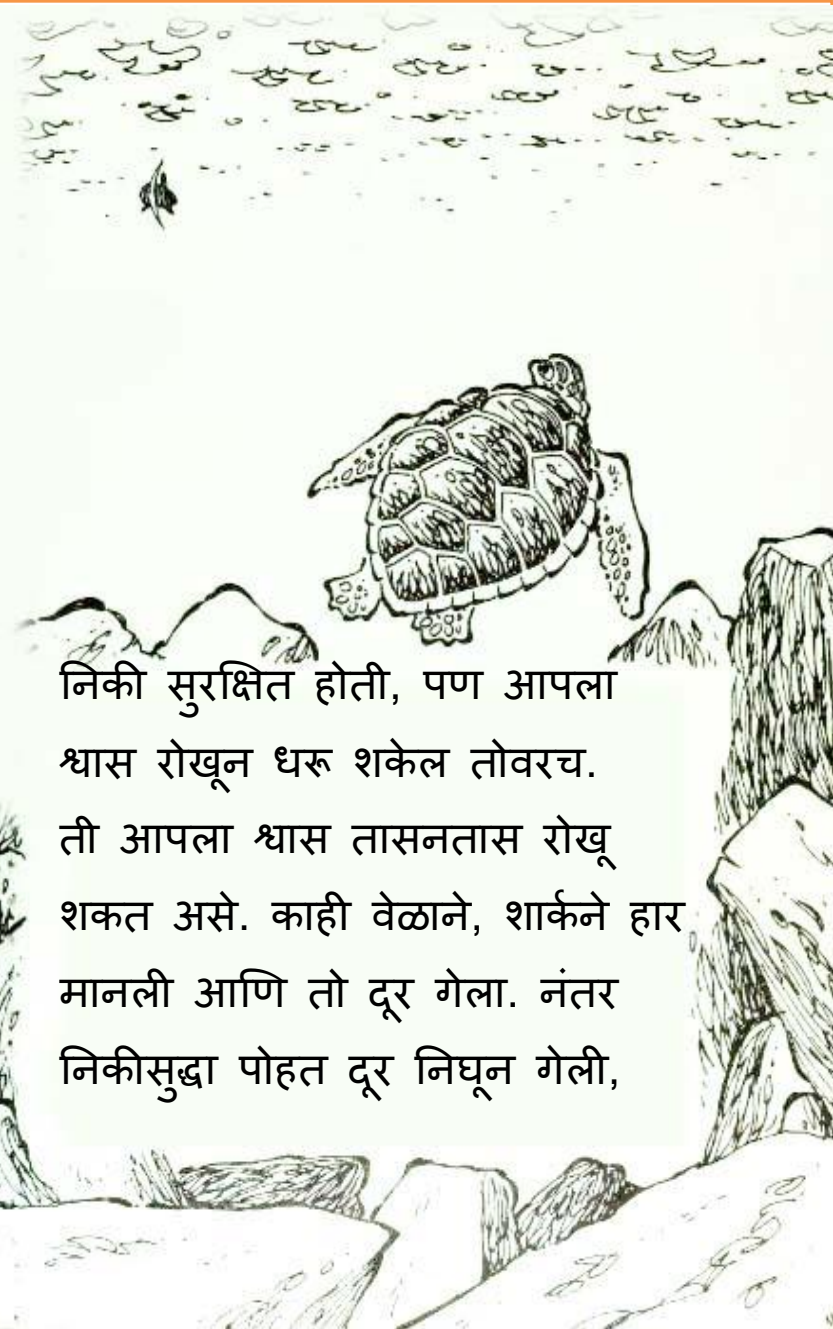 निकी सुरक्षित होती, पण आपला
श्वास रोखून धरू शकेल तोवरच.
ती आपला श्वास तासनतास रोखू
शकत असे. काही वेळाने, शार्कने हार
मानली आणि तो दूर गेला. नंतर
निकीसुद्धा पोहत दूर निघून गेली,